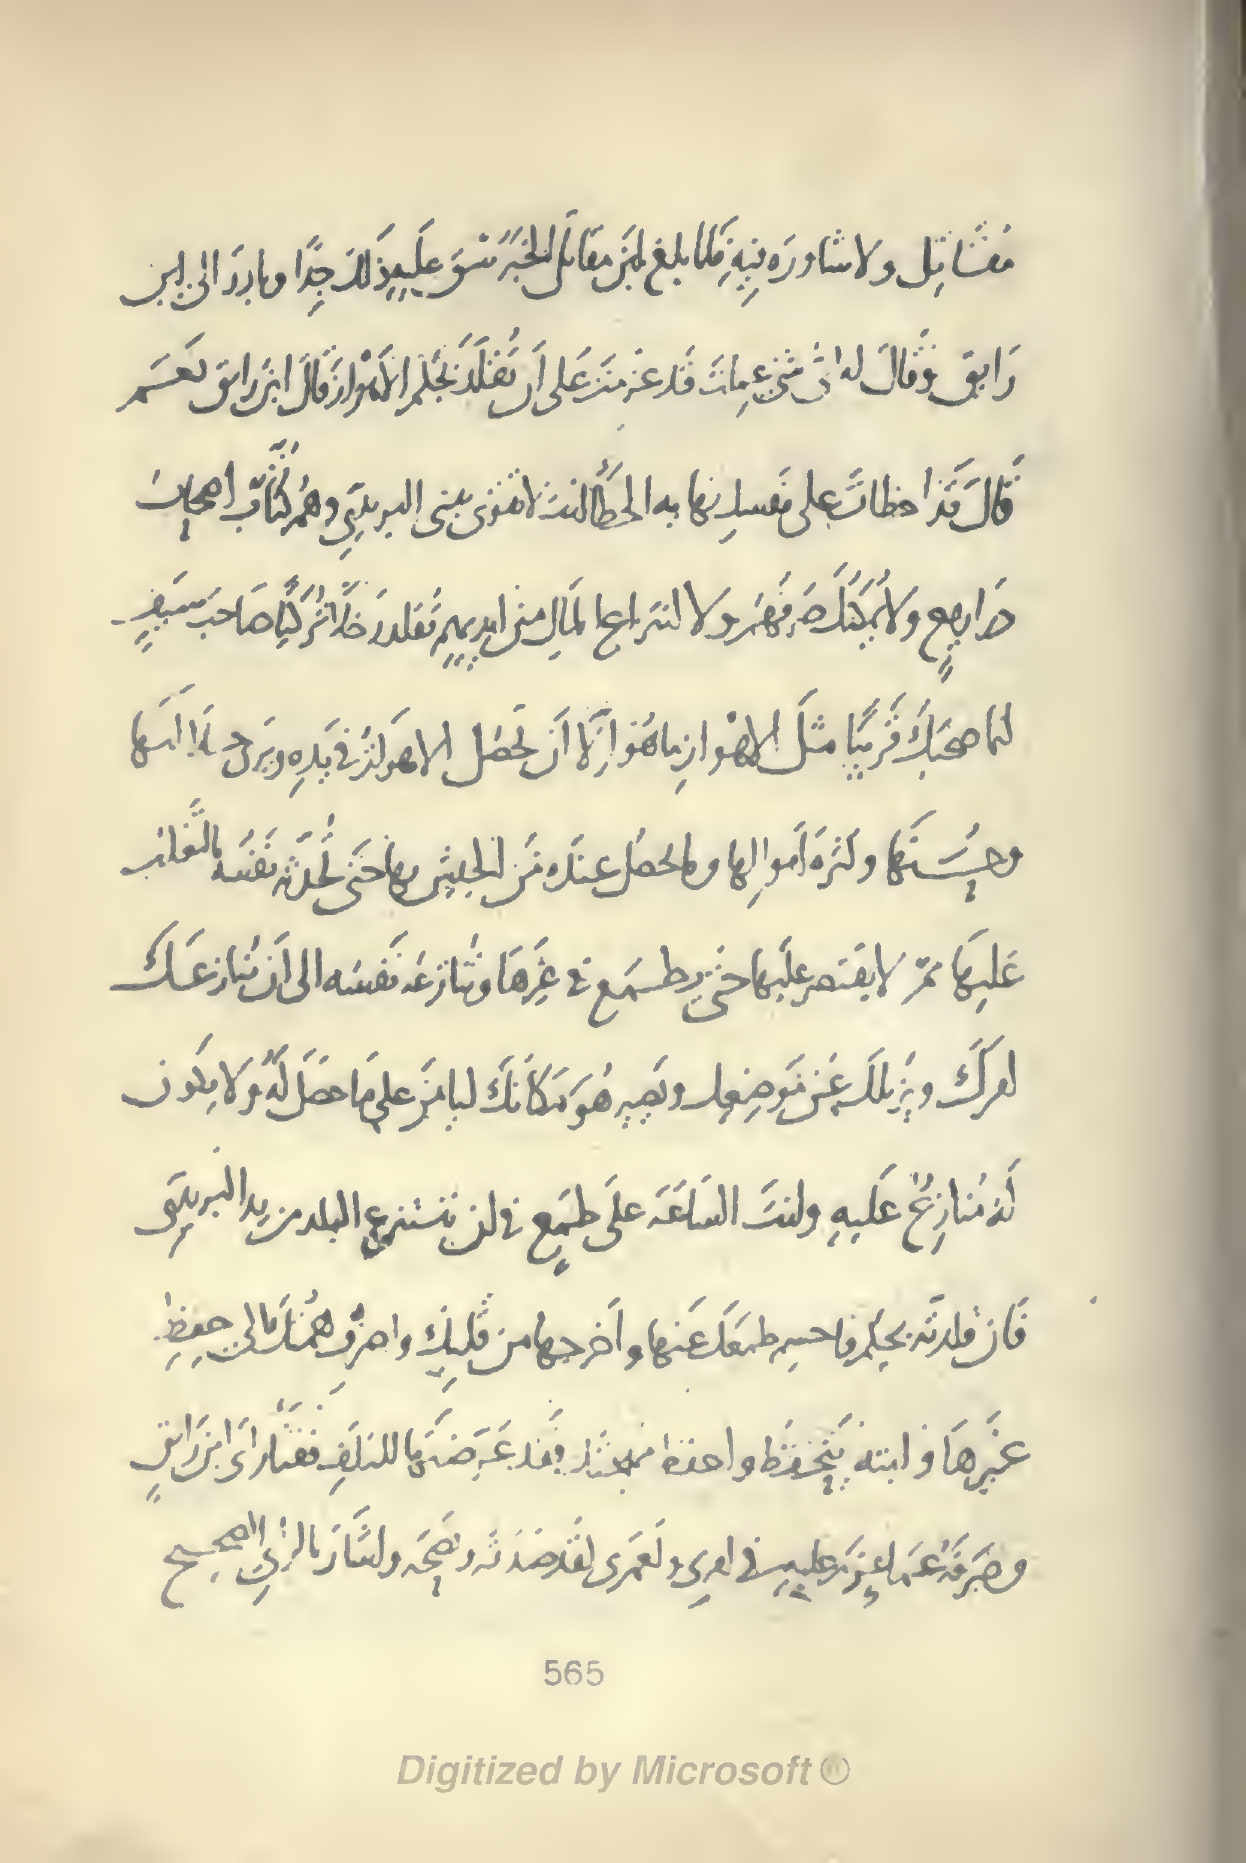 مقاتل ولا شاوره فيه فلما بلغ ابن مقاتل الخبر شق عليه ذلك جدا وبادر الى ابن
رايق وقال له اى شئ عملت قد عزمت على أن تقلد بجكم الأهواز قال ابن رايق نعم
قال قد اخطات على نفسك نهاية الخطأ انت لا تقوى ببنى البريدى وهم كتاب اصحاب
دراريع ولا يمكنك صرفهم ولا انتزاع المال من ايديهم تقلد رجلا تركيا صاحب سيف
انما صحبك قريبا مثل الاهواز ما هو إلا أن تحصل الاهواز فى يده ويرى جلالتها
وحسنها وكثرة أموالها وما يحصل عنده من الجيش بها حتى تحدثه نفسه بالتغلب
عليها ثم لا يقتصر عليها حتى يطمع فى غيرها وتنازعه نفسه الى أن ينازعك
امرك ويزيلك عن موضعك ويصير هو مكانك ليامن على ما حصل له ولا يكون
له منازع عليه وانت الساعة على طمع فى ان تنتزع البلد من يد البريدى
فان قلدته بجكم فاحسم طمعك عنها وأخرجها من قلبك واصرف همتك الى حفظ
غيرها وابته يتحفظ واحفظ مهجتك فقد عرضتها للتلف فقتا رأى ابن رايق
وصرفه عما عزم عليه فى امرى ولعمرى لقد صدقه ونصحه واشار بالرأى الصحيح
565
Digitized by Microsoft ®